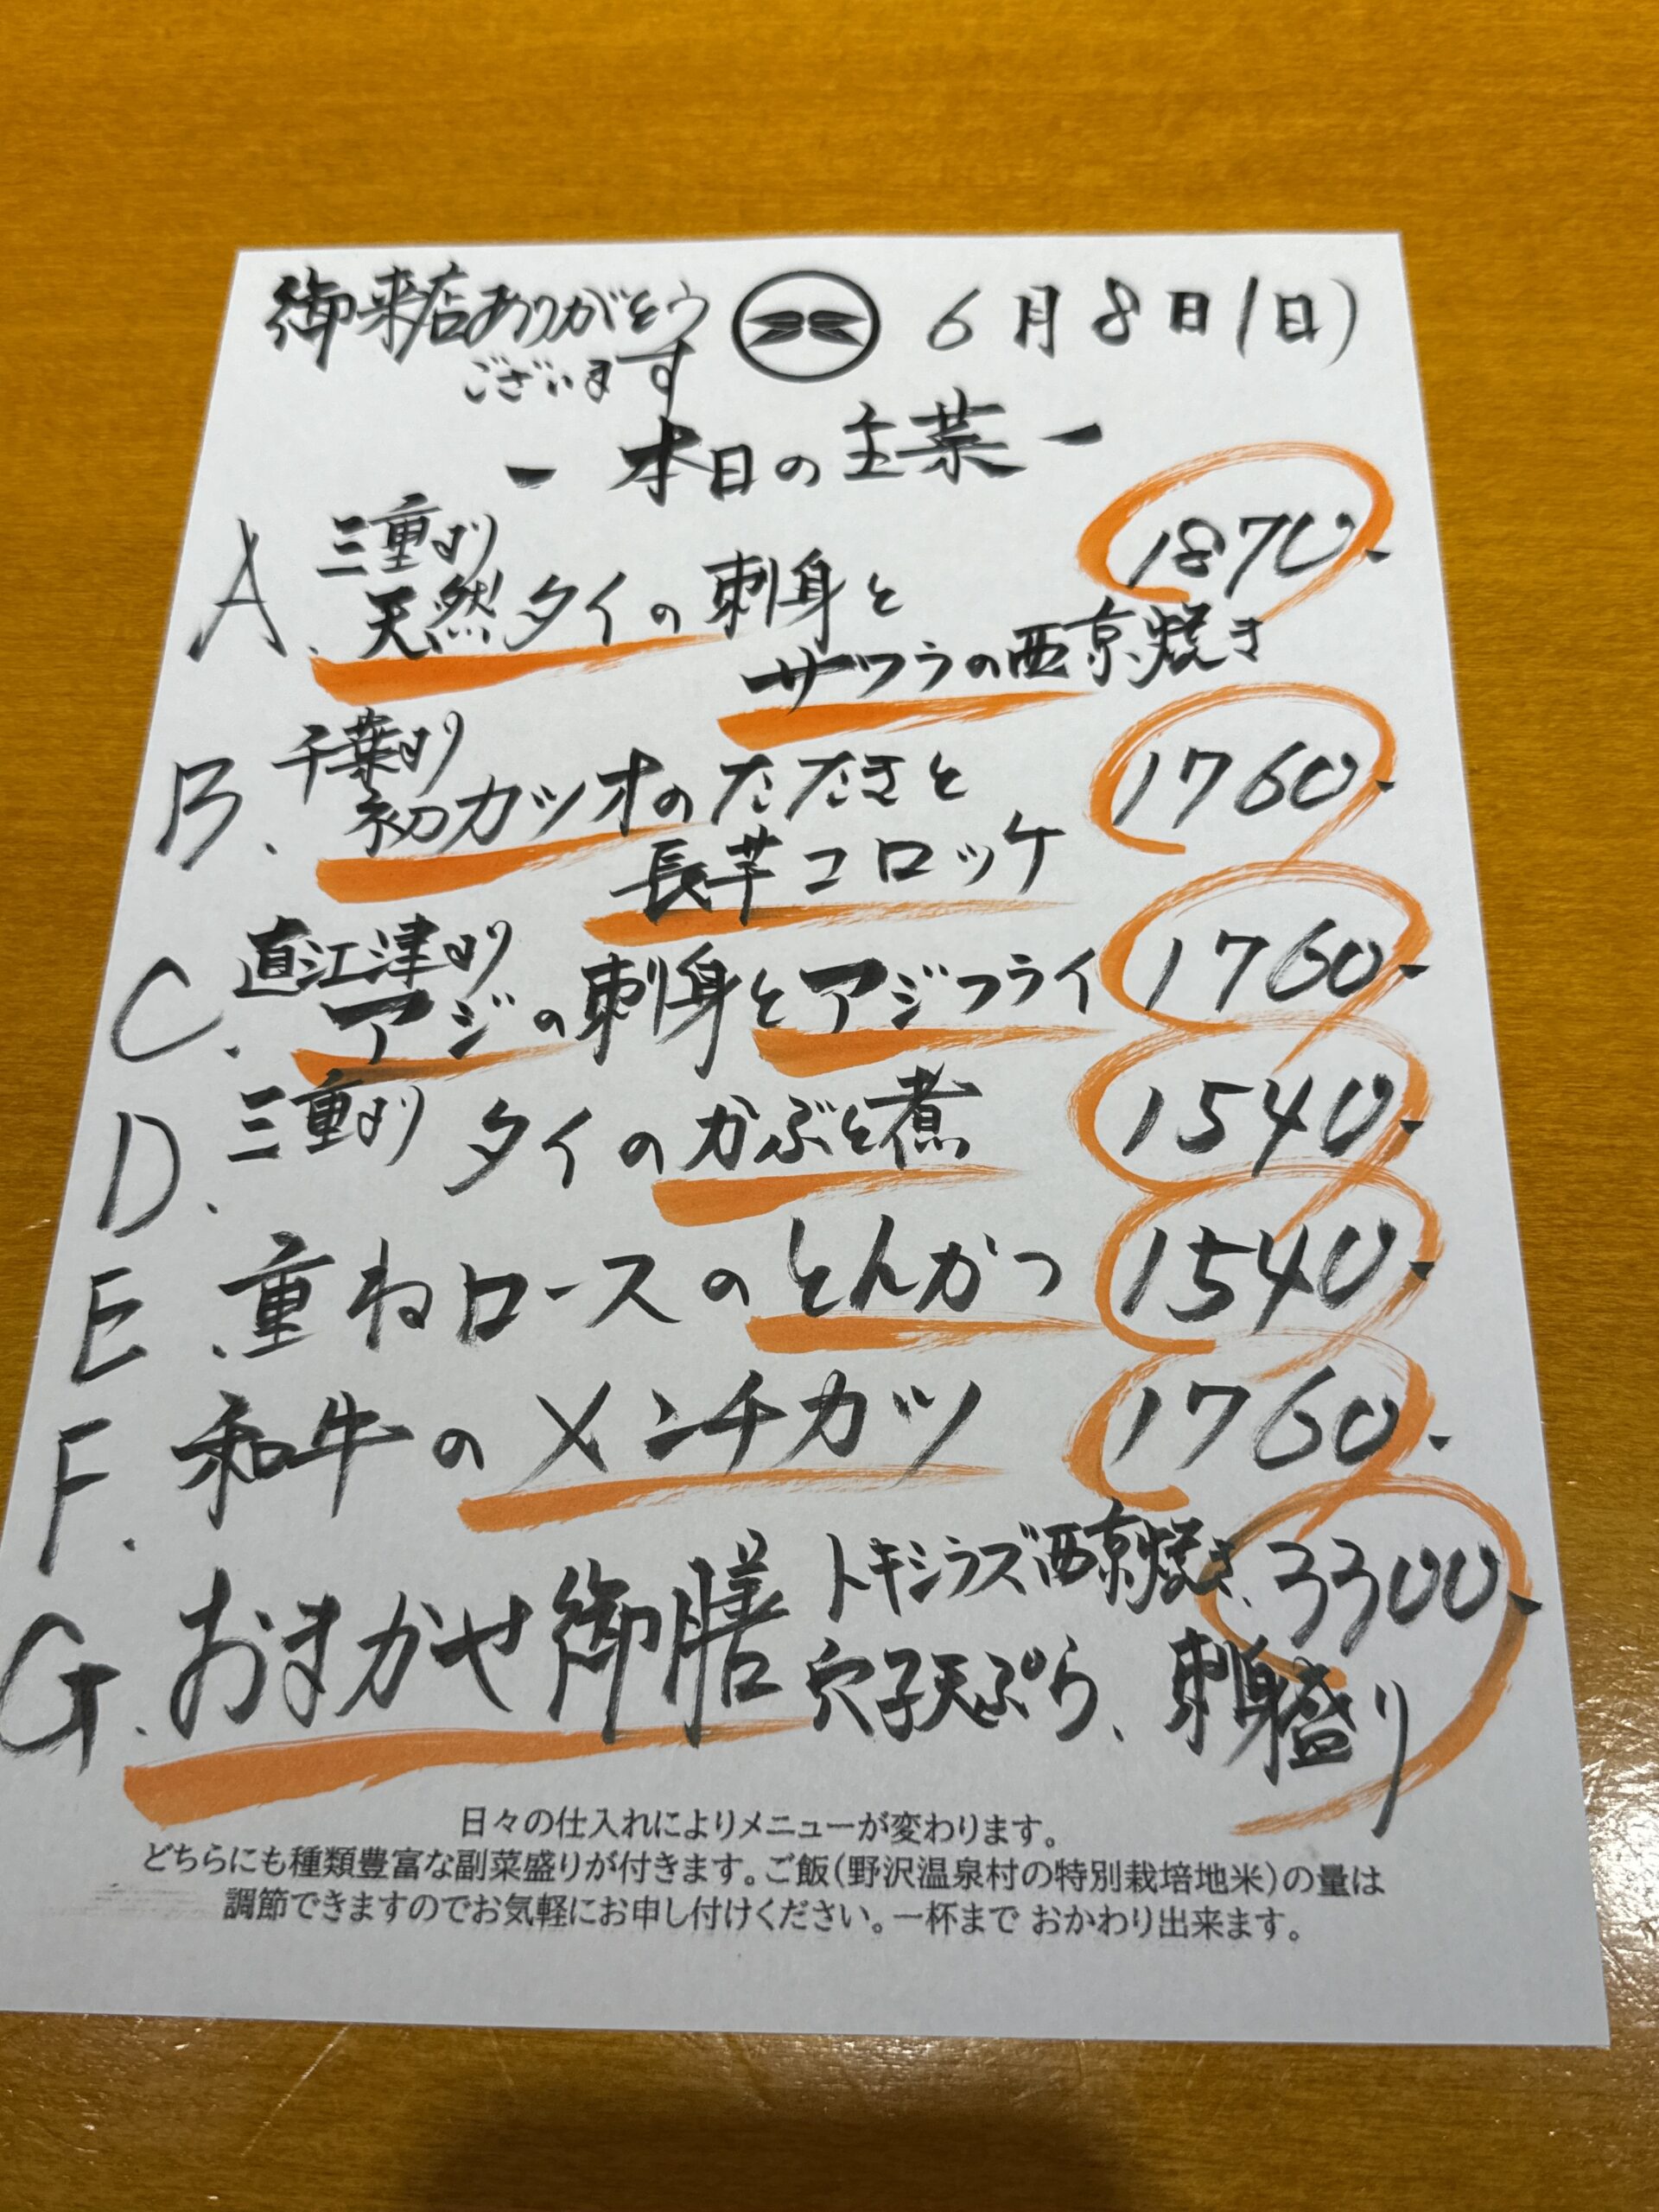 御来店ありがとう
ございます
6月8日(日)
- 本日の主菜 -
A. 三重より
天然タイの刺身と
サワラの西京焼き
1870-
B. 千葉より
初カツオのたたきと
長芋コロッケ
1760-
C. 直江津より
アジの刺身とアジフライ
1760-
D. 三重より タイのかぶと煮 1540-
E. 重ねロースのとんかつ 1540-
F. 和牛のメンチカツ 1760-
G. おまかせ御膳
トキシラズ西京焼き、
穴子天ぷら、刺身盛り
3300-
日々の仕入れによりメニューが変わります。
どちらにも種類豊富な副菜盛りが付きます。ご飯(野沢温泉村の特別栽培地米)の量は
調節できますのでお気軽にお申し付けください。一杯まで おかわり出来ます。